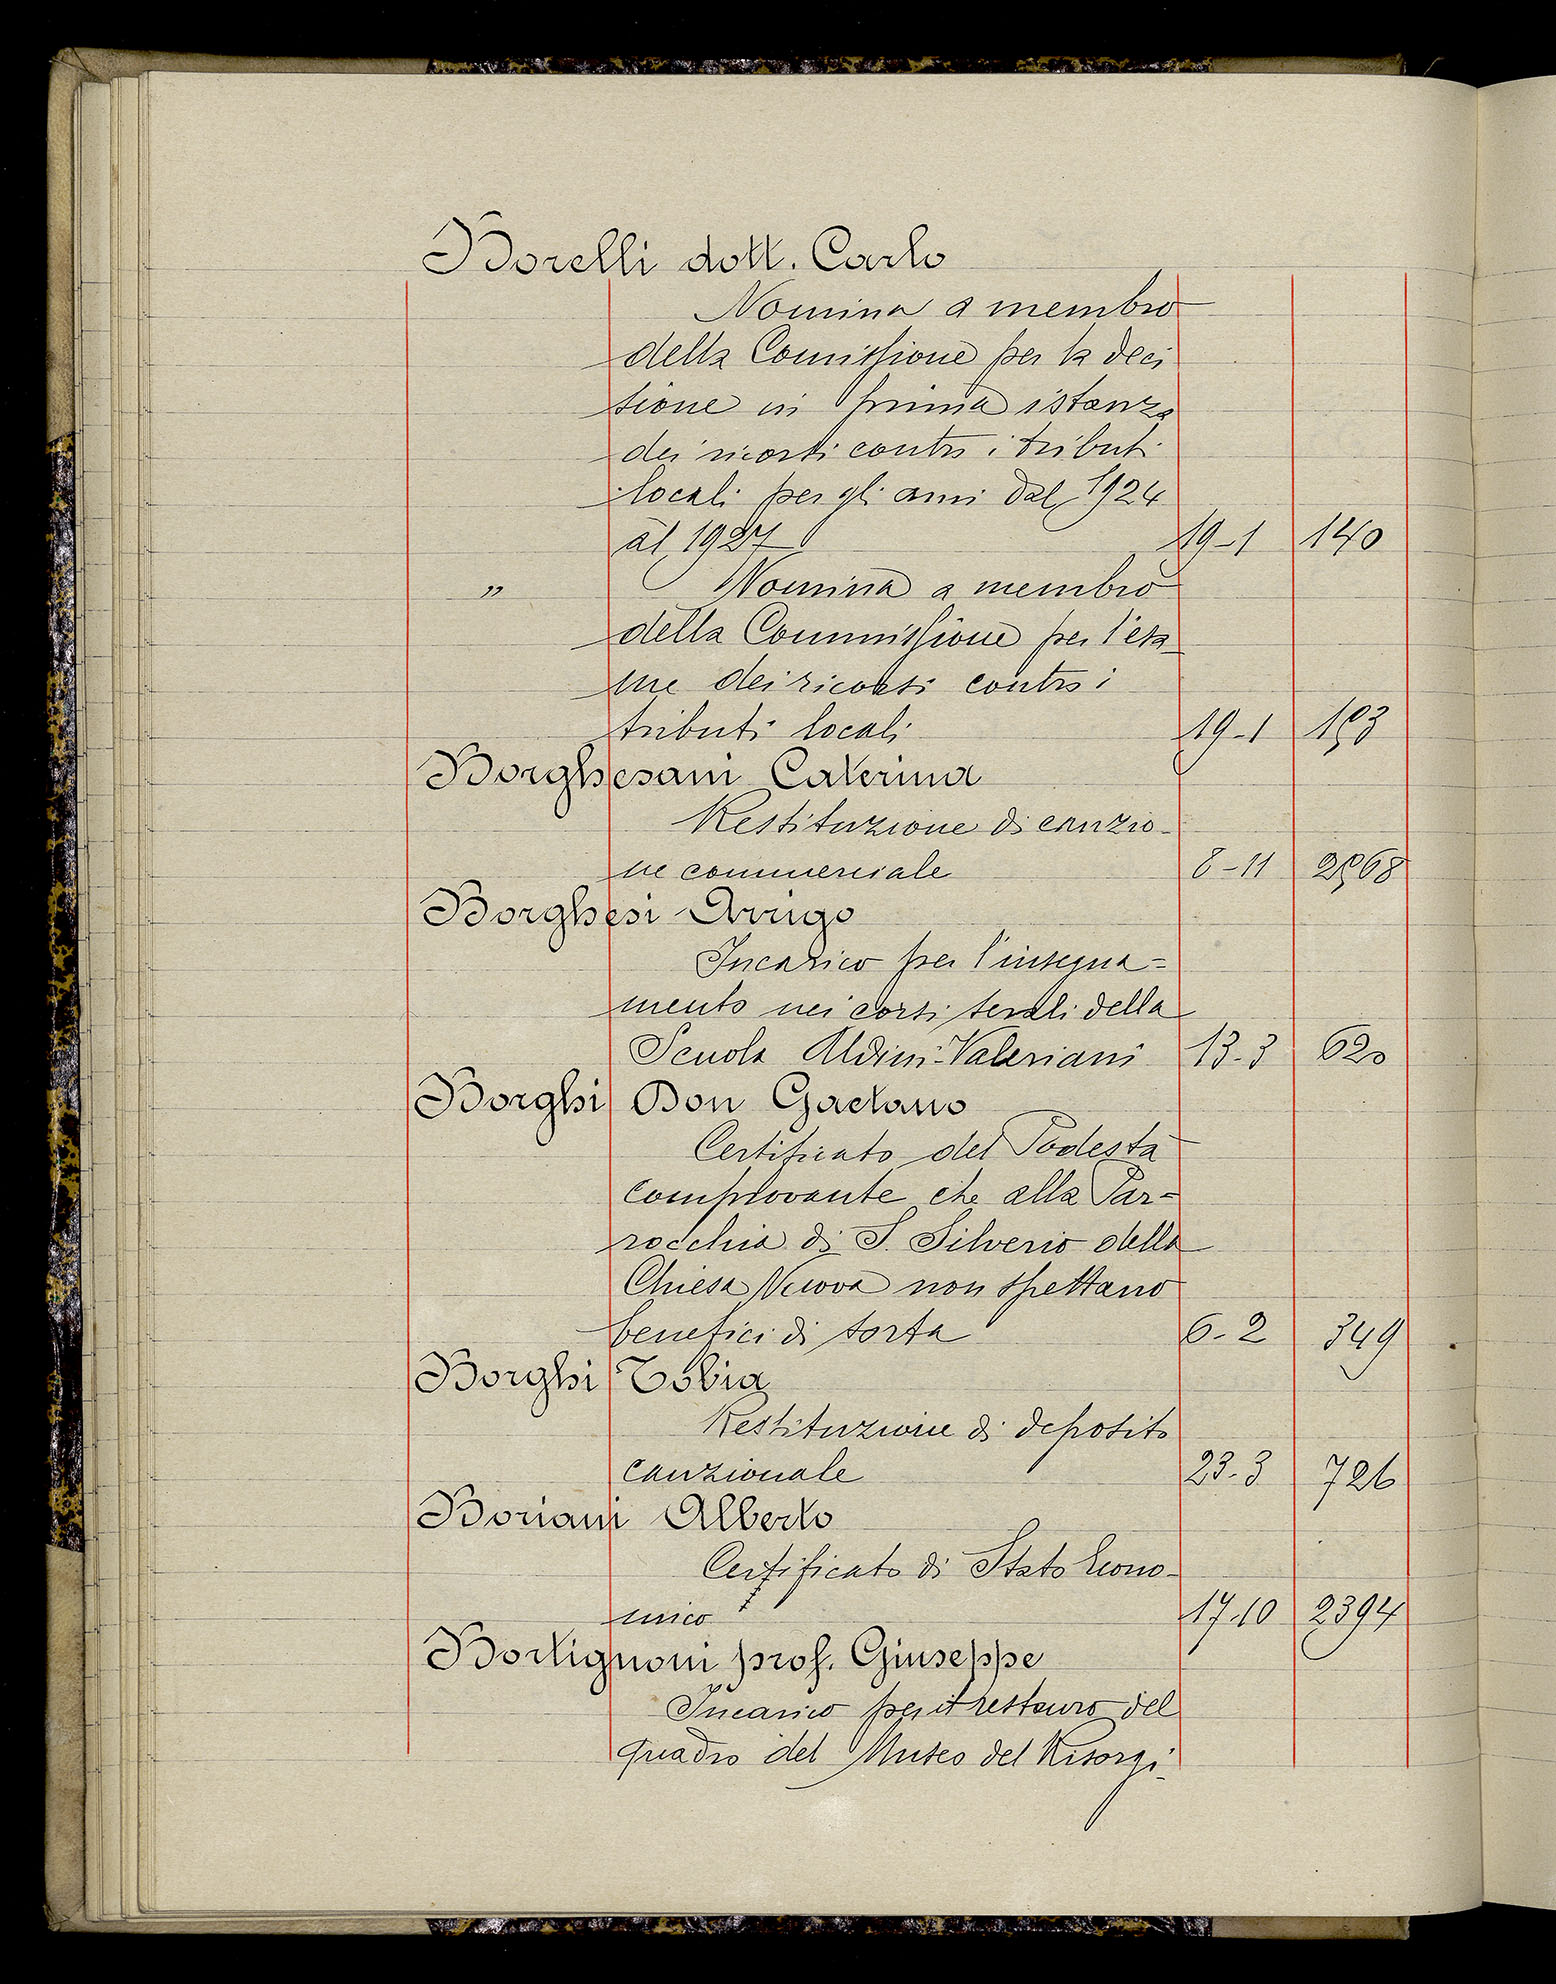 Borelli dott. Carlo
Nomina a membro
della Comissione per la deci
sione in prima istanza
dei ricorsi contro i tributi
locali per gli anni dal 1924
al 1927 19-1 140
" Nomina a membro
della Commissione per l'esa-
me dei ricorsi contro i
tributi locali 19-1 153
Borghesani Caterina
Restituzione di cauzio-
ne commerciale 8-11 2568
Borghesi Arrigo
Incarico per l'insegna=
mento nei corsi serali della
Scuola Aldini-Valeriani 13-3 620
Borghi Don Gaetano
Certificato del Podestà
comprovante che alla Par=
rocchia di S. Silverio della
Chiesa Nuova non spettano
benefici di sorta 6-2 349
Borghi Tobia
Restituzione di deposito
cauzionale 23-3 726
Boriani Alberto
Certificato di Stato Econo-
mico 17-10 2394
Bortignoni prof. Giuseppe
Incarico per il restauro del
quadro del Museo del Risorgi-